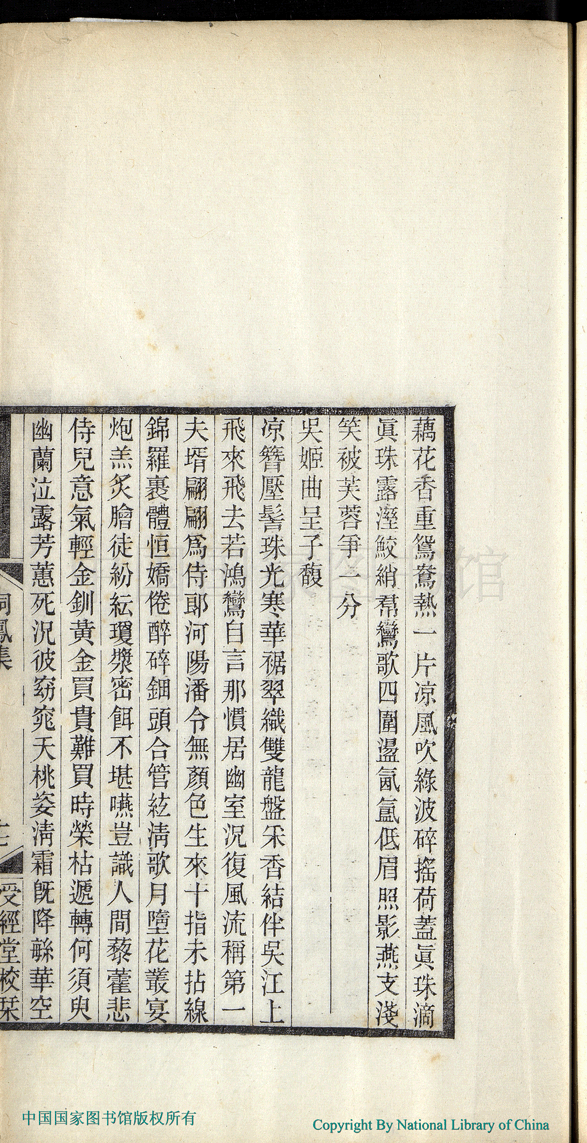 藕花香重鴛鴦熱一片凉風吹綠波碎搖荷蓋眞珠滴
眞珠露溼鮫綃羣鸞歌四圍盪氤氳低眉照影燕支淺
笑被芙蓉爭一分
吳姬曲呈子馥
凉簪壓髻珠光寒華裾翠織雙龍盤采香結伴吳江上
飛來飛去若鴻鸞自言那慣居幽室況復風流稱第一
夫壻翩翩爲侍郎河陽潘令無顏色生來十指未拈線
錦羅裹體恒嬌倦醉碎鈿頭合管絃淸歌月墮花叢宴
炮羔炙膾徒紛紜瓊漿密餌不堪嚥豈識人間藜藿悲
侍兒意氣輕金釧黃金買貴難買時榮枯遞轉何須臾
幽蘭泣露芳蕙死況彼窈窕夭桃姿淸霜旣降繇華空
桐鳳集
受經堂校栞
中国国家图书馆
中国国家图书馆版权所有
Copyright By National Library of China